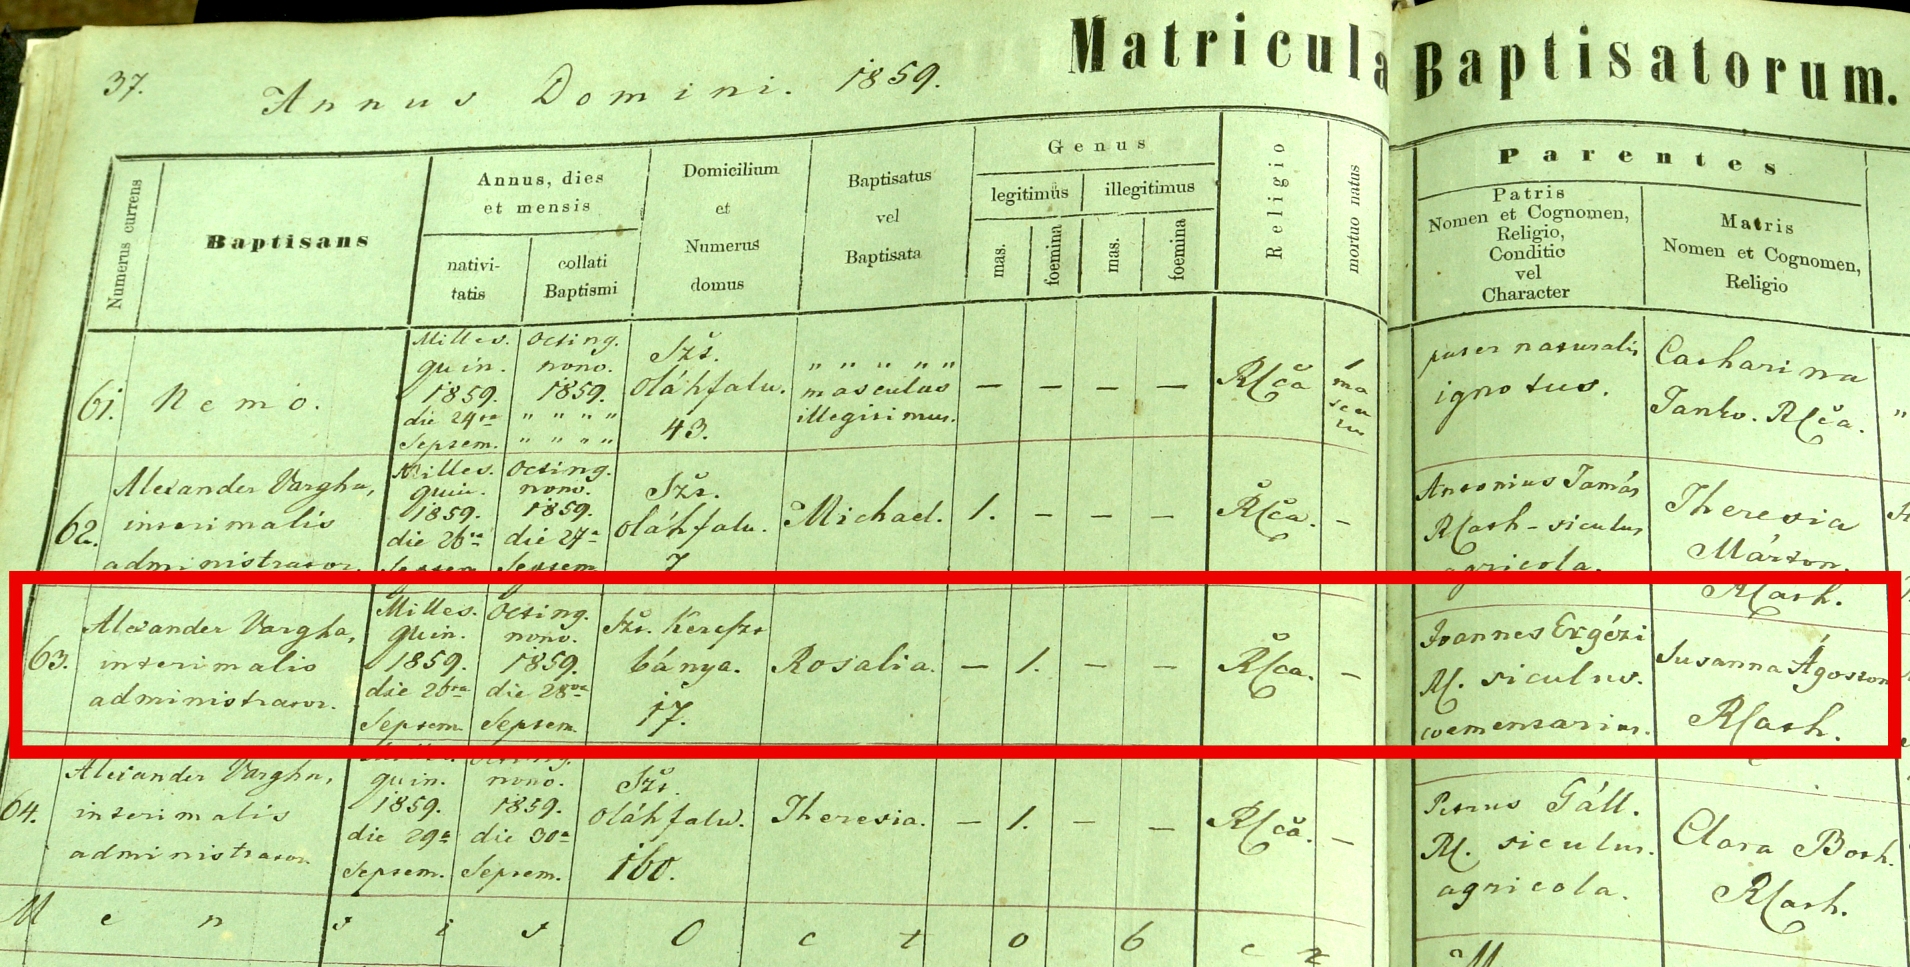 37. Annus Domini. 1859. Matricula Baptisatorum.
Numerus currens
Baptisans
Annus, dies
et mensis
nativi-
tatis
collati
Baptismi
Domicilium
et
Numerus
domus
Baptisatus
vel
Baptisata
Genus
legitimus
illegitimus
mas.
foemina
mas.
foemina
Religio
mortuo natus
Parentes
Patris
Nomen et Cognomen,
Religio,
Conditio
vel
Character
Matris
Nomen et Cognomen,
Religio
61.
Nemo.
Milles.
quin.
1859.
die 24ta
Septem.
Octing.
nono.
1859.
" " " "
" " " "
Szs.
oláhfalu.
43.
" " " " "
masculus
illegitimus.
— — — —
R(ca
1
ma
scu
lus
puer naturalis
ignotus.
Catharina
Tanko. R(ca.
"
62.
Alexander Vargha,
interimalis
administrator.
Milles.
quin.
1859.
die 26ta
Septem
Octing.
nono.
1859.
die 27a
Septem
Szs.
oláhfalu.
7
Michael.
1. — — —
R(ca.
—
Antonius Tamás
R(cath-siculus
agricola.
Theresia
Márton.
R(cath.
63.
Alexander Vargha,
interimalis
administrator.
Milles.
quin.
1859.
die 26ta
Septem.
Octing.
nono.
1859.
die 28va
Septem.
Szs. Kereszt
bánya.
17.
Rosalia.
— 1. — —
R(ca.
—
Joannes Ergézi
R(. siculus.
coementarius.
Susanna Ágoston
R(cath.
64.
Alexander Vargha,
interimalis
administrator
quin.
1859.
die 29a
Septem.
nono.
1859.
die 30a
Septem.
Szs.
oláhfalu.
160.
Theresia.
— 1. — —
R(ca.
—
Petrus Gáll.
R(. siculus.
agricola.
Clara Both.
R(cath.
Mensis October